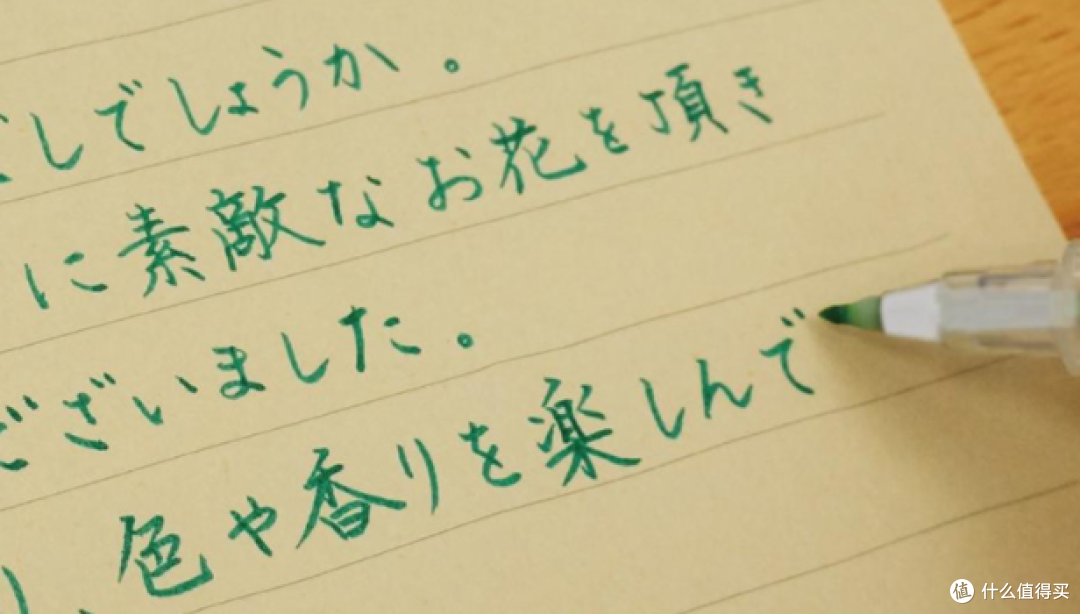 しでしょうか。
に素敵なお花を頂き
ございました。
色や香りを楽しんで
値 什么值得买